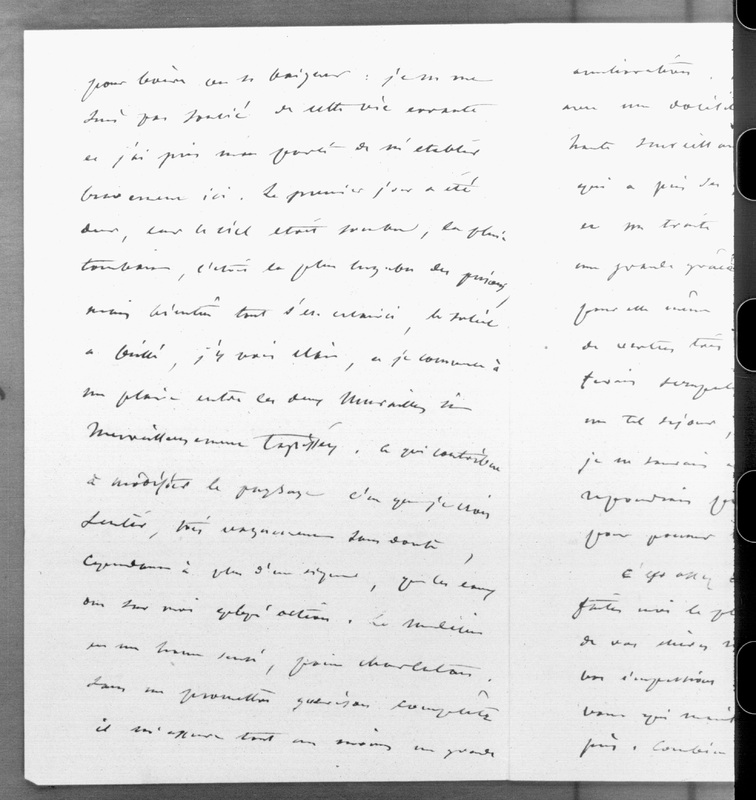 pour boire ou se baigner : je ne me
suis pas soucié de cette vie errante
et j'ai pris mon parti de m'établir
bravement ici. Le premier jour a été
dur, car le ciel était sombre, la pluie
tombait, c'était la plus lugubre des prisons,
mais bientôt tout s'est éclairci, le soleil
a brillé, j'y vois clair, et je commence à
me plaire entre ces deux murailles si
merveilleusement tapissées. Ce qui contribue
à modifier le paysage c'est que je crois
sentir, très vaguement sans doute,
cependant à plus d'un signe, que les eaux
ont sur moi quelqu'action. Le médecin
est un homme sensé, point charlatan.
Sans me promettre guérison complète
il m'assure tout au moins un grande
amélioration.
avec une
haute
qui a pris
et me traite
une grande
pour elle même
de vertus très
ferais
un tel séjour,
je ne saurais
répondrais
pour pouvoir
C'est assez
faites moi le
de vos chères
vos impressions
vous qui
pris. Combien